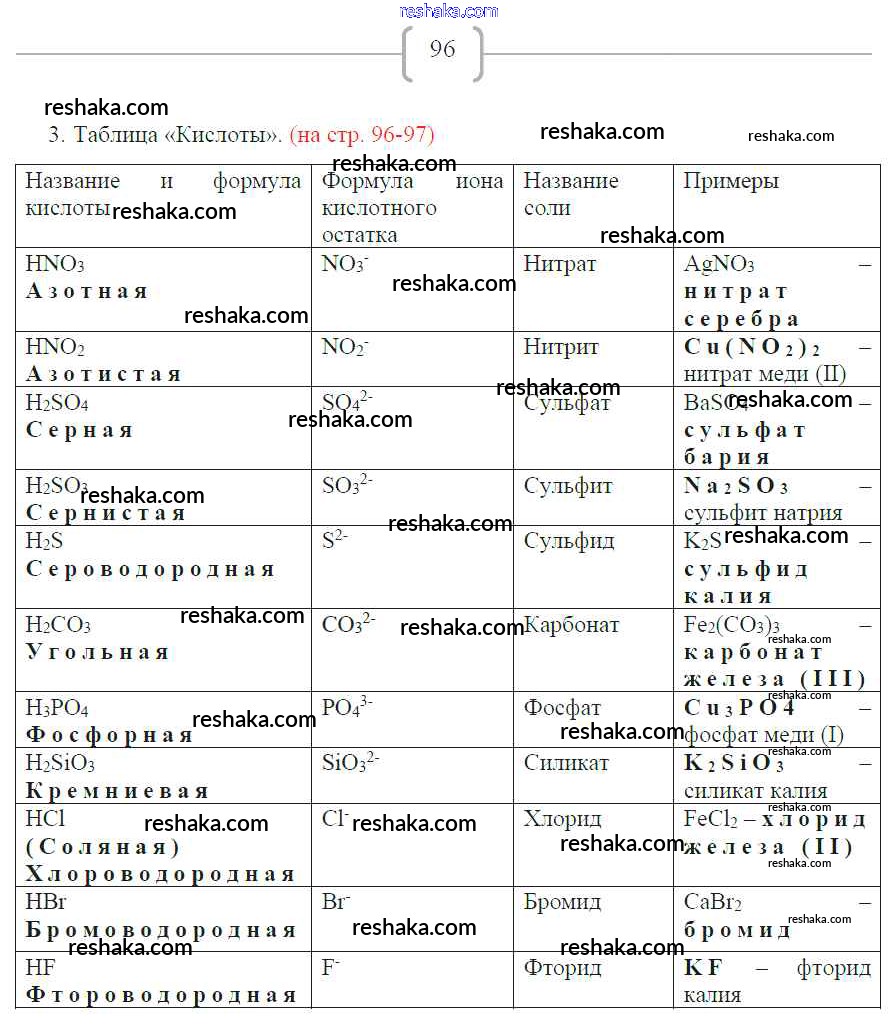 reshaka.com
96
reshaka.com
3. Таблица «Кислоты». (на стр. 96-97)
reshaka.com
reshaka.com
reshaka.com
Название и формула кислоты
Формула иона кислотного остатка
Название соли
Примеры
reshaka.com
reshaka.com
HNO₃
Азотная
NO₃⁻
Нитрат
AgNO₃ –
нитрат
серебра
reshaka.com
reshaka.com
HNO₂
Азотистая
NO₂⁻
Нитрит
Cu(NO₂)₂ –
нитрат меди (II)
reshaka.com
H₂SO₄
Серная
SO₄²⁻
Сульфат
BaSO₄ –
сульфат
бария
reshaka.com
reshaka.com
H₂SO₃
Сернистая
SO₃²⁻
Сульфит
Na₂SO₃ –
сульфит натрия
reshaka.com
reshaka.com
H₂S
Сероводородная
S²⁻
Сульфид
K₂S –
сульфид
калия
reshaka.com
H₂CO₃
Угольная
CO₃²⁻
Карбонат
Fe₂(CO₃)₃ –
карбонат
железа (III)
reshaka.com
reshaka.com
reshaka.com
H₃PO₄
Фосфорная
PO₄³⁻
Фосфат
Cu₃PO4 –
фосфат меди (I)
reshaka.com
reshaka.com
reshaka.com
H₂SiO₃
Кремниевая
SiO₃²⁻
Силикат
K₂SiO₃ –
силикат калия
reshaka.com
HCl
(Соляная)
Хлороводородная
Cl⁻
Хлорид
FeCl₂ – хлорид
железа (II)
reshaka.com
reshaka.com
reshaka.com
reshaka.com
reshaka.com
HBr
Бромоводородная
Br⁻
Бромид
CaBr₂ –
бромид
reshaka.com
reshaka.com
reshaka.com
reshaka.com
HF
Фтороводородная
F⁻
Фторид
KF – фторид
калия